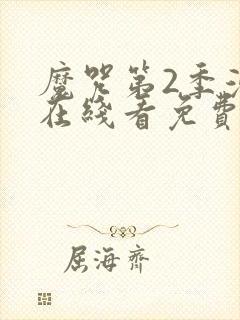 魔咒第2季
在线看免费
屈海齐